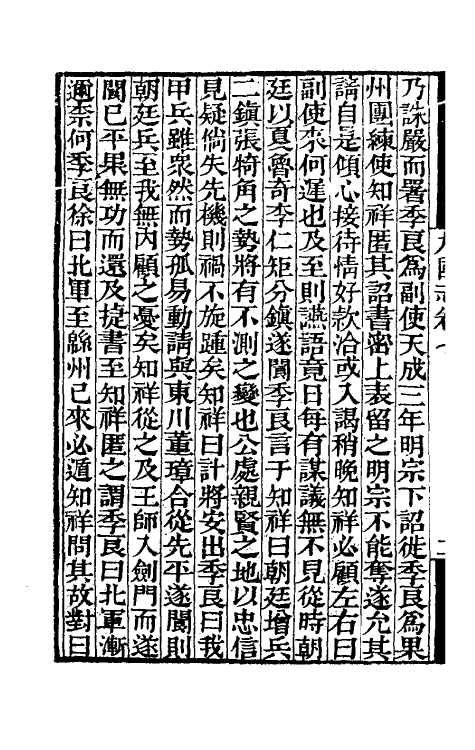 乃誅嚴而署季良爲副使天成三年明宗下詔徙季良爲果
州團練使知祥匿其詔書密上表留之明宗不能奪遂允其
請自是傾心接待情好款洽或入謁稍晚知祥必顧左右曰
副使來何遲也及至則讌語竟日每有謀議無不見從時朝
廷以夏魯奇李仁矩分鎮遂閬季良言于知祥曰朝廷增兵
二鎮張犄角之勢將有不測之變也公處親賢之地以忠信
見疑倘失先機則禍不旋踵矣知祥曰計將安出季良曰我
甲兵雖衆然而勢孤易動請與東川董璋合從先平遂閬則
朝廷兵至我無內顧之憂矣知祥從之及王師入劍門而遂
閬已平果無功而還及捷書至知祥匿之謂季良曰北軍漸
邇柰何季良徐曰北軍至緜州已來必遁知祥問其故對曰